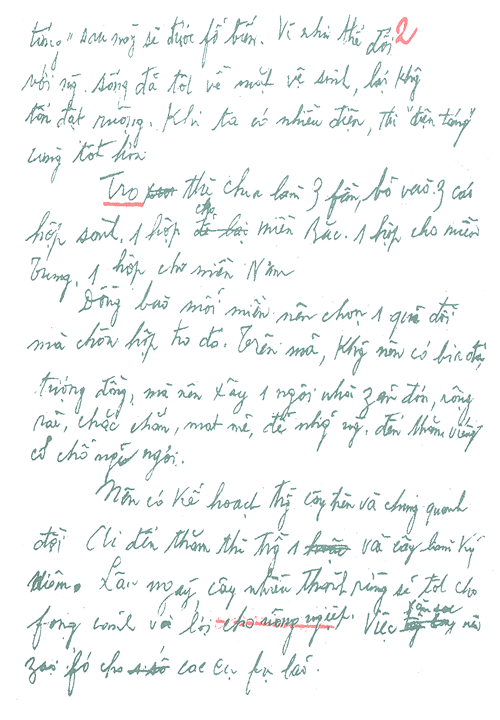 táng" sau này sẽ được fổ biến. Vì như thế đối 2
với ng. sống đã tot về mặt vệ sinh, lại khg
tốn đạt ruộng. Khi ta có nhiều điện, thì "điện táng"
càng tot hơn
Tro thì chia làm 3 fần, bỏ vào 3 cái
hộp sành. 1 hộp cho miền Bắc. 1 hộp cho miền
Trung, 1 hộp cho miền Nam
Đồng bào mỗi miền nên chọn 1 quả đồi
mà chôn hộp tro đó. Trên mả, khg nên có bia đá,
tượng đồng, mà nên xây 1 ngôi nhà zản đơn, rộng
rãi, chắc chắn, mat mẻ, để nhg ng. đến thăm viếng
có chỗ ngỉ ngơi.
Nên có kế hoạch trg cây trên và chung quanh
đồi. Ai đến thăm thì trg 1 vài cây làm kỷ
niệm. Lâu ngày, cây nhiều thành rừng sẽ tot cho
fong cảnh và lợi cho nông ngiệp. Việc săn sóc nên
zao fó cho các cụ fụ lão.